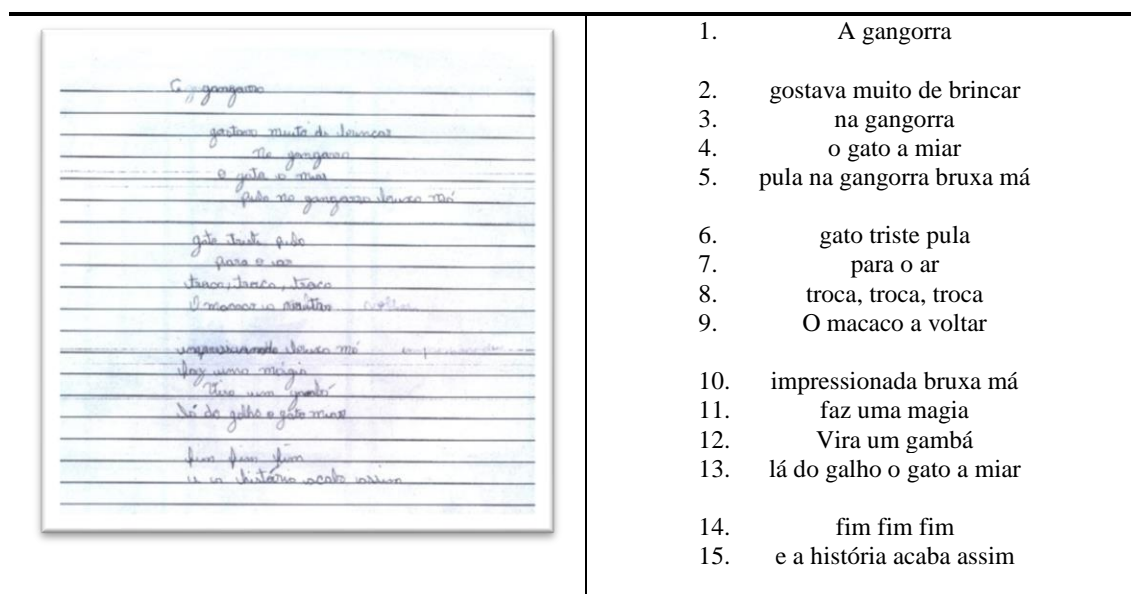 A gangorra
gostava muito de brincar
na gangorra
o gato a miar
pula na gangorra bruxa má
gato triste pula
para o ar
troca, troca, troca
O macaco a voltar
impressionada bruxa má
faz uma mágia
Vira um gambá
lá do galho o gato miar
fim fim fim
e a história acaba assim
1. A gangorra
2. gostava muito de brincar
3. na gangorra
4. o gato a miar
5. pula na gangorra bruxa má
6. gato triste pula
7. para o ar
8. troca, troca, troca
9. O macaco a voltar
10. impressionada bruxa má
11. faz uma magia
12. Vira um gambá
13. lá do galho o gato a miar
14. fim fim fim
15. e a história acaba assim